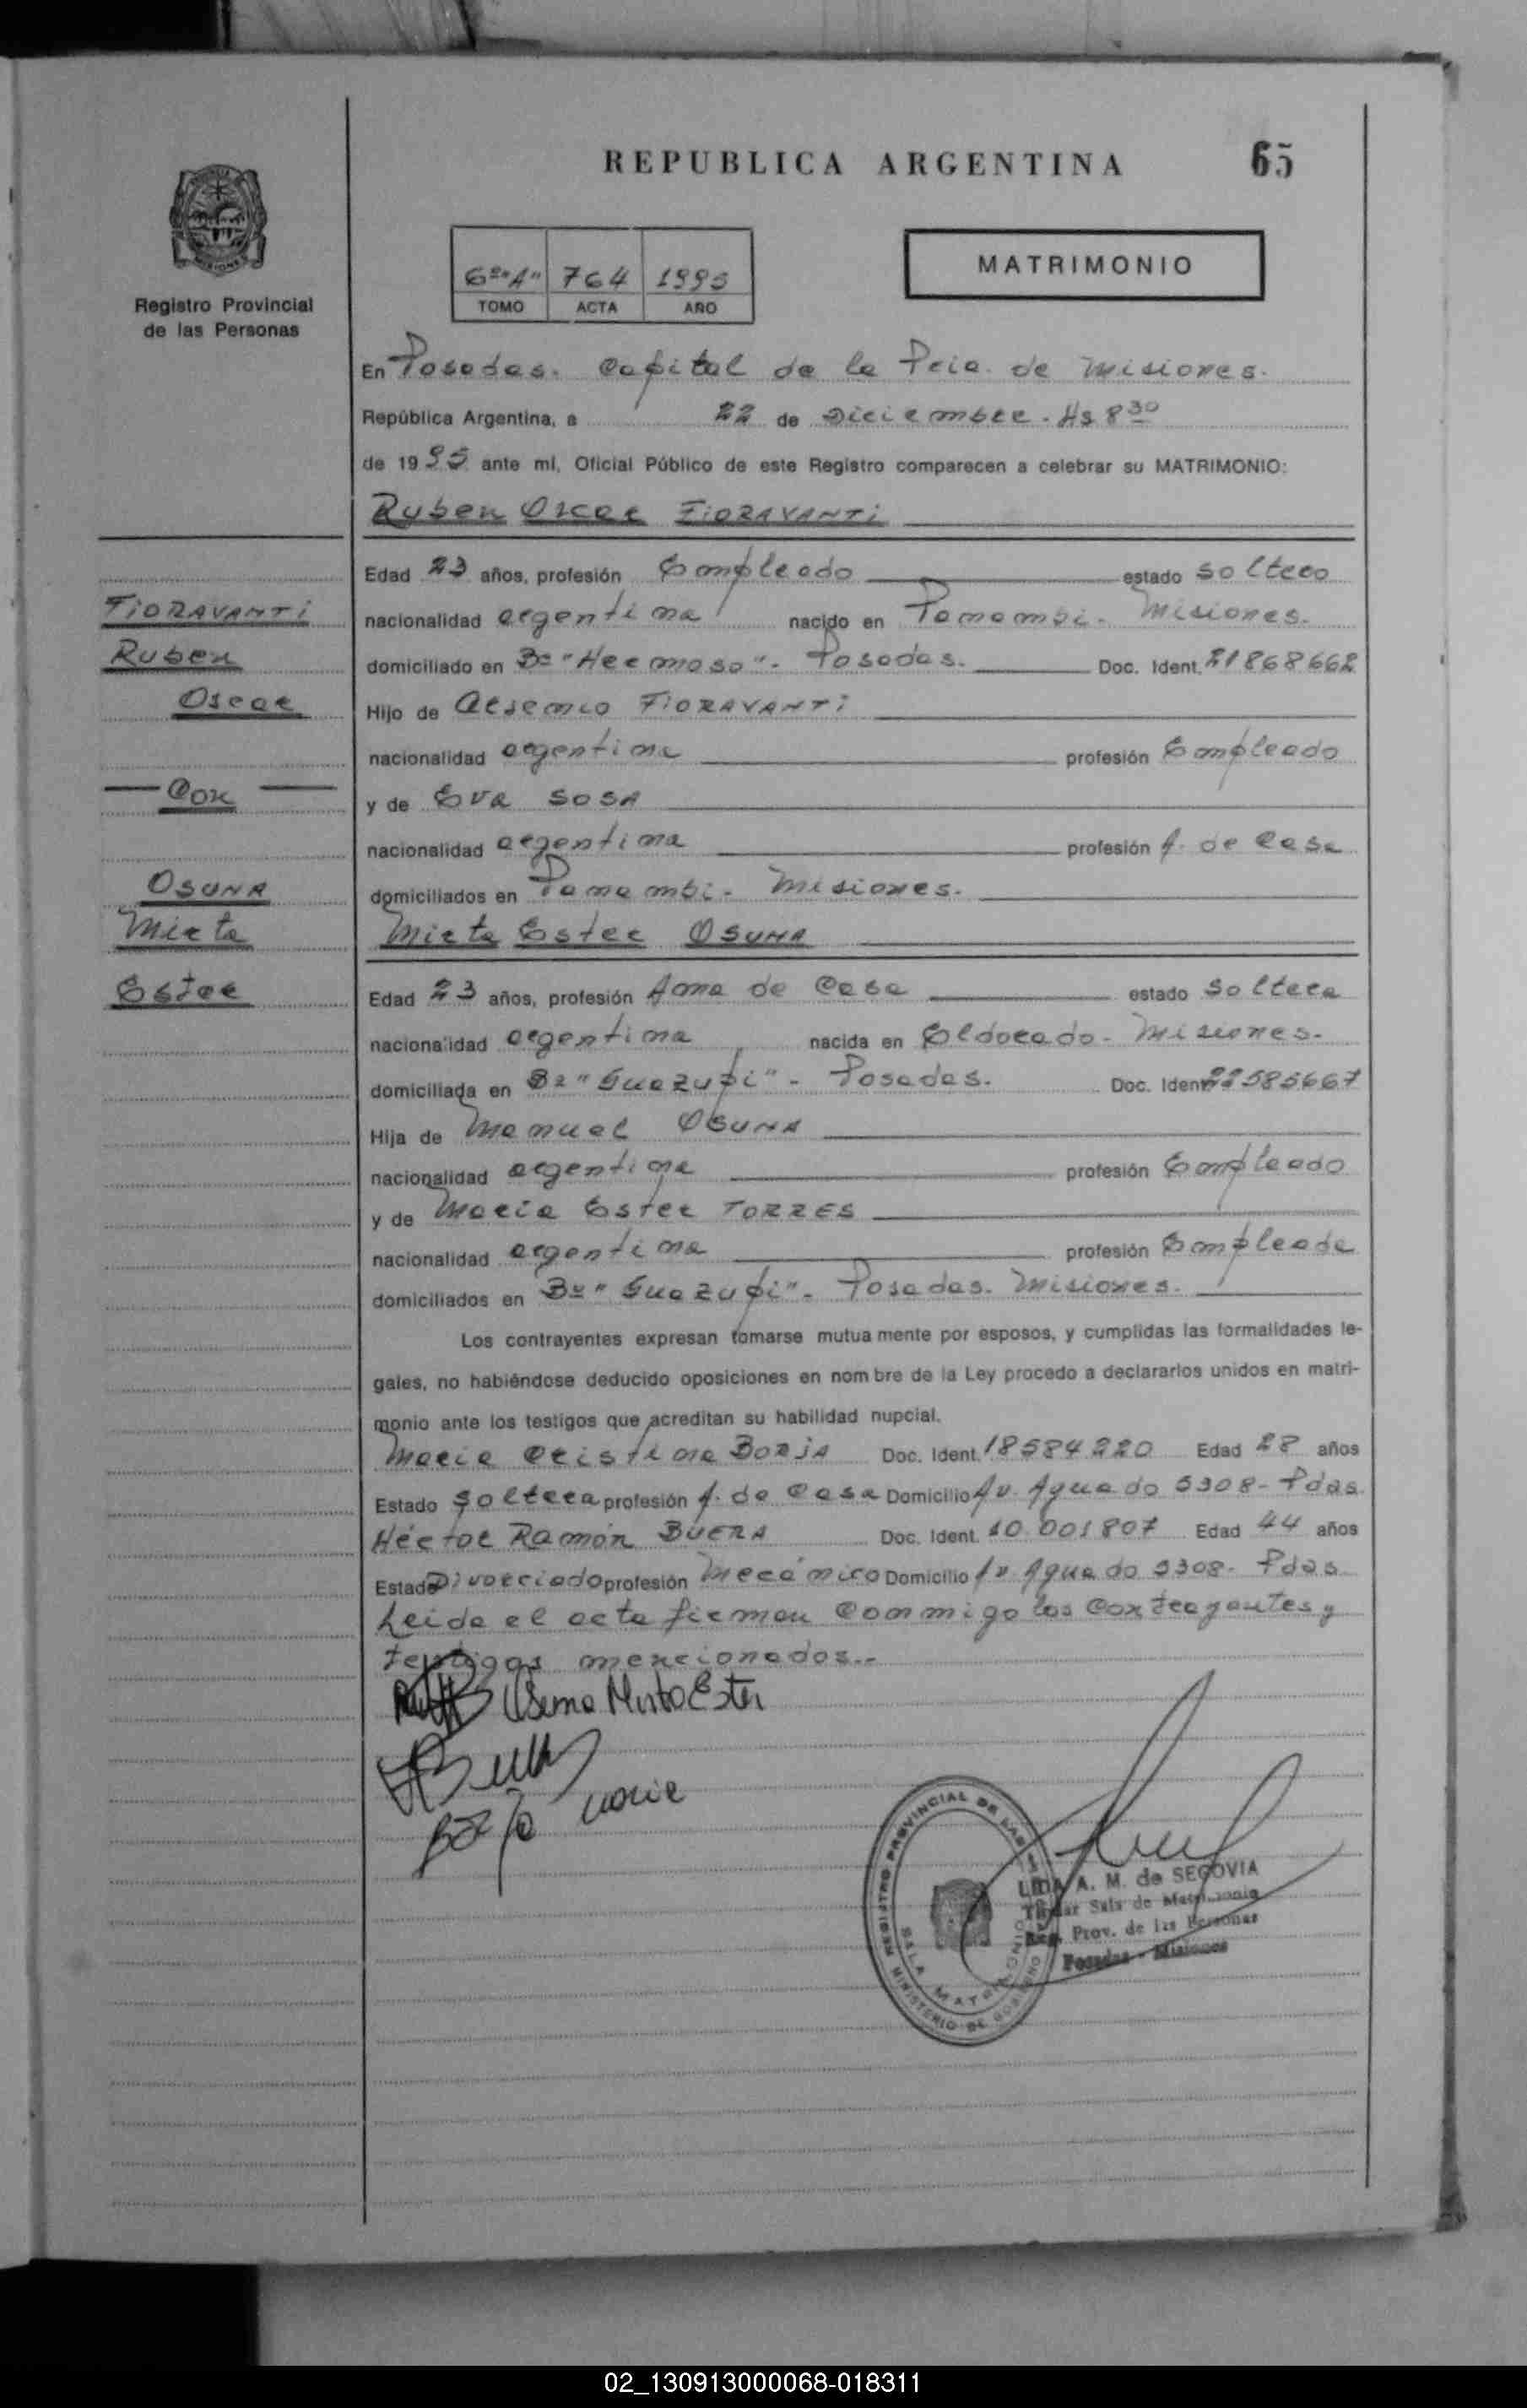 REPUBLICA ARGENTINA
65
MISIONES
Registro Provincial
de las Personas
6º "A" 764 1995
TOMO ACTA AÑO
MATRIMONIO
En Posadas. Capital de la Pcia. de Misiones.
República Argentina, a 22 de Diciembre. Hs 8 30
de 1995 ante mí, Oficial Público de este Registro comparecen a celebrar su MATRIMONIO:
Ruben Oscar FIORAVANTI
Edad 23 años, profesión Empleado estado soltero
nacionalidad argentina nacido en Panambi. Misiones.
domiciliado en Bº "Hermoso". Posadas. Doc. Ident. 21868662
Hijo de Arsenio FIORAVANTI
nacionalidad argentina profesión Empleado
y de Eva SOSA
nacionalidad argentina profesión A. de Casa
domiciliados en Panambi. Misiones.
FIORAVANTI
Ruben
Oscar
Con
OSUNA
Mirta
Ester
Mirta Ester OSUNA
Edad 23 años, profesión Ama de Casa estado soltera
nacionalidad argentina nacida en Eldorado. Misiones.
domiciliada en Bº "Guazupi". Posadas. Doc. Ident. 22585667
Hija de Manuel OSUNA
nacionalidad argentina profesión Empleado
y de Maria Ester TORRES
nacionalidad argentina profesión Empleada
domiciliados en Bº "Guazupi". Posadas. Misiones.
Los contrayentes expresan tomarse mutua mente por esposos, y cumplidas las formalidades le-
gales, no habiéndose deducido oposiciones en nom bre de la Ley procedo a declararlos unidos en matri-
monio ante los testigos que acreditan su habilidad nupcial.
Maria Cristina BORJA Doc. Ident. 18584220 Edad 28 años
Estado Soltera profesión A. de Casa Domicilio Av. Aguado 5308- Pdas
Héctor Ramón BUERA Doc. Ident. 10.001807 Edad 44 años
Estado Divorciado profesión Mecánico Domicilio Av. Aguado 5308- Pdas
Leida el acta firman conmigo los contrayentes y
testigos mencionados.-
Osuna Mirta Ester
Borja Maria
REGISTRO PROVINCIAL DE LAS
SALA MATRIMONIO
MINISTERIO DE GOBIERNO
LIDA A. M. de SEGOVIA
Titular Sala de Matrimonio
Reg. Prov. de las Personas
Posadas - Misiones
02_130913000068-018311